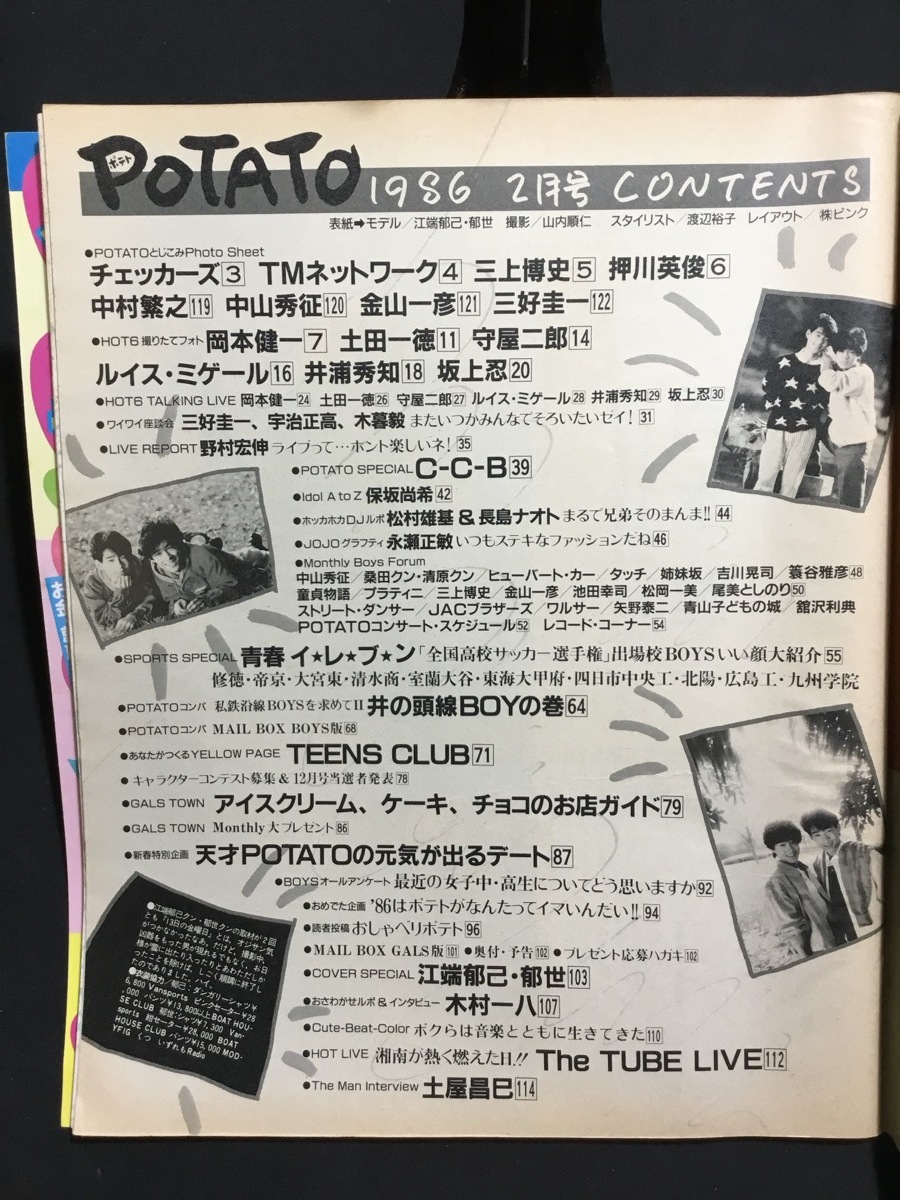 POTATO ポテト
1986 2月号 CONTENTS
表紙➡モデル/江端郁己・郁世 撮影/山内順仁 スタイリスト/渡辺裕子 レイアウト/㈱ピンク
●POTATOとじこみPhoto Sheet
チェッカーズ3 TMネットワーク4 三上博史5 押川英俊6
中村繁之119 中山秀征120 金山一彦121 三好圭一122
●HOT6 撮りたてフォト 岡本健一7 土田一徳11 守屋二郎14
ルイス・ミゲール16 井浦秀知18 坂上忍20
●HOT6 TALKING LIVE 岡本健一24 土田一徳26 守屋二郎27 ルイス・ミゲール28 井浦秀知29 坂上忍30
●ワイワイ座談会 三好圭一、宇治正高、木暮毅 またいつかみんなでそろいたいゼイ!31
●LIVE REPORT 野村宏伸 ライブって…ホント楽しいネ!35
●POTATO SPECIAL C-C-B39
●idol A to Z 保坂尚希42
●ホッカホカDJルポ 松村雄基&長島ナオト まるで兄弟そのまんま!!44
●JOJOグラフティ 永瀬正敏 いつもステキなファッションだね46
●Monthly Boys Forum
中山秀征/桑田クン・清原クン/ヒューバート・カー/タッチ/姉妹坂/吉川晃司/蓑谷雅彦48
童貞物語/プラティニ/三上博史/金山一彦/池田幸司/松岡一美/尾美としのり50
ストリート・ダンサー/JACブラザーズ/ワルサー/矢野泰二/青山子どもの城/舘沢利典
POTATOコンサート・スケジュール52 レコード・コーナー54
●SPORTS SPECIAL 青春イ★レ★ブ★ン「全国高校サッカー選手権」出場校BOYSいい顔大紹介55
修徳・帝京・大宮東・清水商・室蘭大谷・東海大甲府・四日市中央工・北陽・広島工・九州学院
●POTATOコンパ 私鉄沿線BOYSを求めてⅡ 井の頭線BOYの巻64
●POTATOコンパ MAIL BOX BOYS版68
●あなたがつくるYELLOW PAGE TEENS CLUB71
●キャラクターコンテスト募集&12月号当選者発表78
●GALS TOWN アイスクリーム、ケーキ、チョコのお店ガイド79
●GALS TOWN Monthly大プレゼント86
●新春特別企画 天才POTATOの元気が出るデート87
●BOYSオールアンケート 最近の女子中・高生についてどう思いますか92
●おめでた企画 '86はポテトがなんたってイマいんだい!!94
●読者投稿 おしゃべりポテト96
●MAIL BOX GALS版101 ●奥付・予告102 ●プレゼント応募ハガキ102
●COVER SPECIAL 江端郁己・郁世103
●おさわがせルポ&インタビュー 木村一八107
●Cute-Beat-Color ボクらは音楽とともに生きてきた110
●HOT LIVE 湘南が熱く燃えた日!! The TUBE LIVE112
●The Man Interview 土屋昌巳114
●江端郁己クン・郁世クンの取材が2回
とも「13日の金曜日」とは、オジサン気
がつかなかったなあ。だけど、撮影中、
凶器をもった男が現れるでもなく、お日
様が雲に出たり入ったりとあわただしか
ったことを除けば、しごく順調に終了し
たのでありました。ハイ。
●衣装協力/郁己:ダンガリーシャツ¥
6,800 Vansports ピンクセーター¥28
,000 パンツ¥13,800以上BOAT HOU-
SE CLUB 郁世:シャツ¥7,300 Van-
sports 紺セーター¥28,000 BOAT
HOUSE CLUB パンツ¥15,000 MOD-
YFIG くつ いずれもRadio